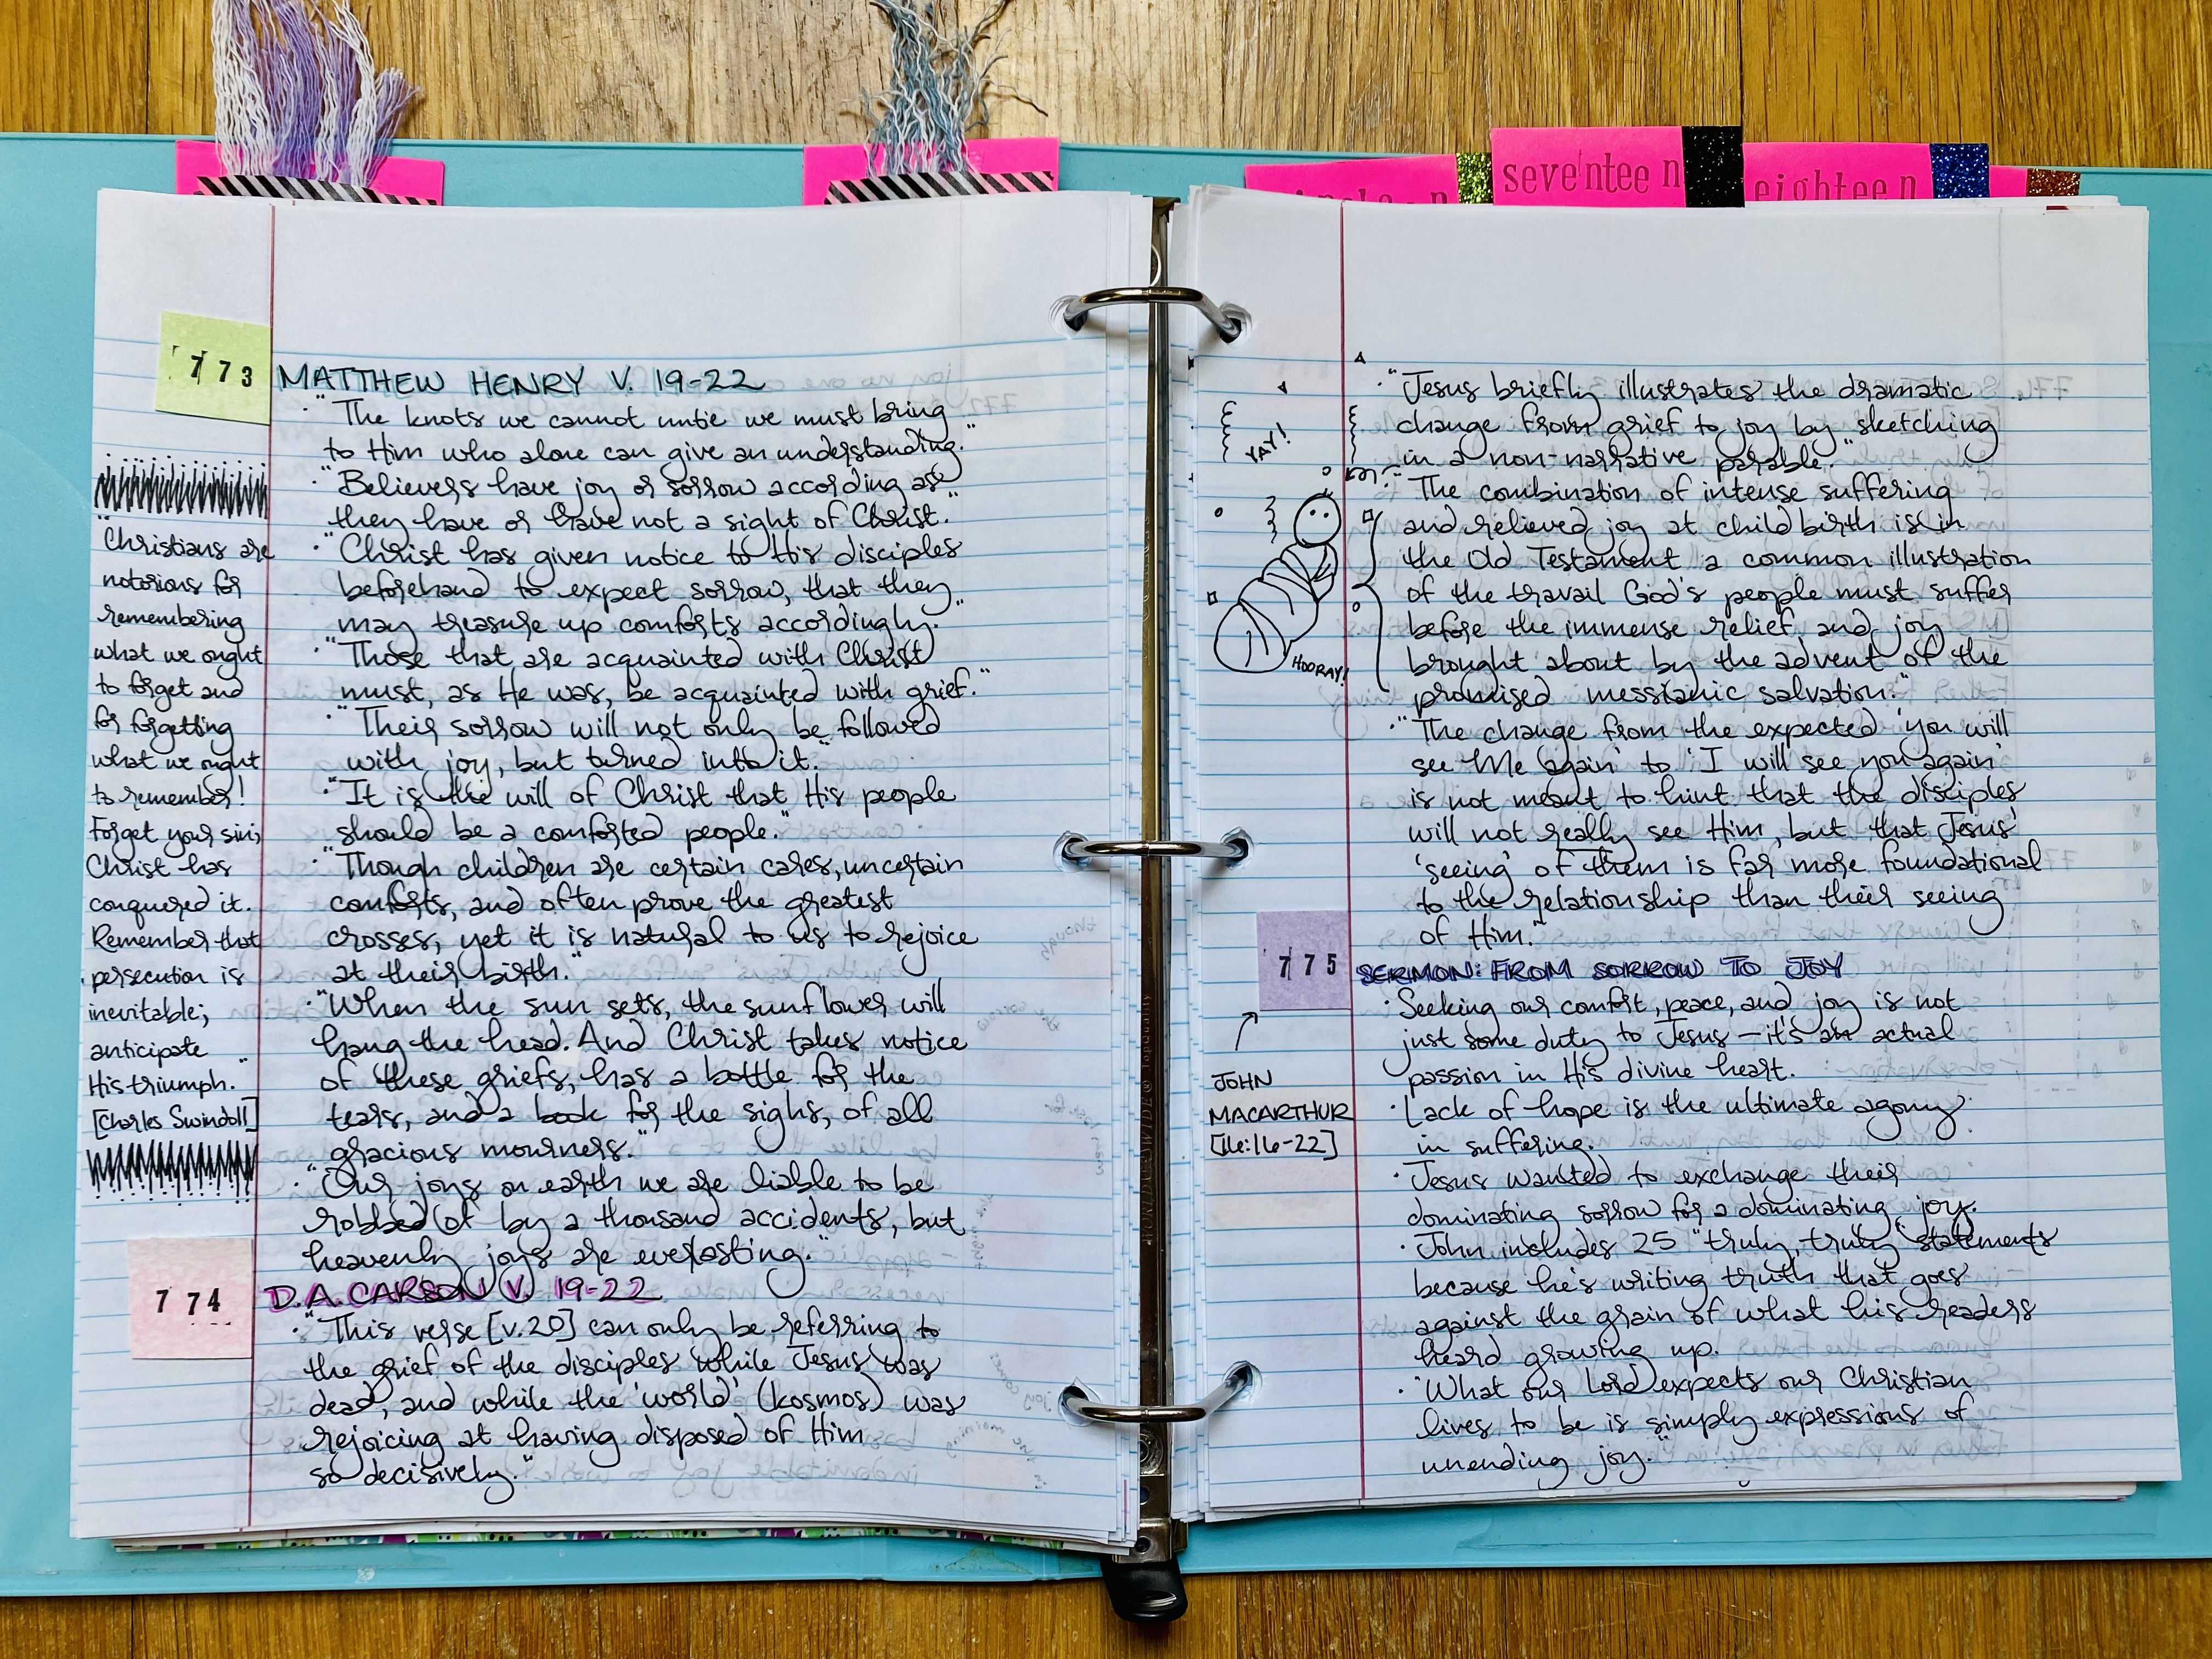 seventeen
eighteen
773
MATTHEW HENRY V. 19-22
· "The knots we cannot untie we must bring
to Him who alone can give an understanding."
· "Believers have joy or sorrow according as
they have or have not a sight of Christ."
· "Christ has given notice to His disciples
beforehand to expect sorrow, that they
may treasure up comforts accordingly."
· "Those that are acquainted with Christ
must, as He was, be acquainted with grief."
· "Their sorrow will not only be followed
with joy, but turned into it."
· "It is the will of Christ that His people
should be a comforted people."
· "Though children are certain cares, uncertain
comforts, and often prove the greatest
crosses, yet it is natural to us to rejoice
at their birth."
· "When the sun sets, the sunflower will
hang the head. And Christ takes notice
of these griefs, has a bottle for the
tears, and a book for the sighs, of all
gracious mourners."
· "Our joys on earth we are liable to be
robbed of by a thousand accidents, but
heavenly joys are everlasting."
"Christians are
notorious for
remembering
what we ought
to forget and
for forgetting
what we ought
to remember!
Forget your sin;
Christ has
conquered it.
Remember that
persecution is
inevitable;
anticipate
His triumph."
[Charles Swindoll]
774
D.A. CARSON V. 19-22
· "This verse [v.20] can only be referring to
the grief of the disciples while Jesus was
dead, and while the 'world' (kosmos) was
rejoicing at having disposed of Him
so decisively."
· "Jesus briefly illustrates the dramatic
change from grief to joy by sketching
in a non-narrative parable."
· "The combination of intense suffering
and relieved joy at child birth is in
the Old Testament a common illustration
of the travail God's people must suffer
before the immense relief and joy
brought about by the advent of the
promised messianic salvation."
· "The change from the expected 'you will
see Me again' to 'I will see you again'
is not meant to hint that the disciples
will not really see Him, but that Jesus'
'seeing' of them is far more foundational
to the relationship than their seeing
of Him."
YAY!
HOORAY!
775
SERMON: FROM SORROW TO JOY
JOHN
MACARTHUR
[16:16-22]
· Seeking our comfort, peace, and joy is not
just some duty to Jesus — it's an actual
passion in His divine heart.
· Lack of hope is the ultimate agony
in suffering.
· Jesus wanted to exchange their
dominating sorrow for a dominating joy.
· John includes 25 "truly, truly" statements
because he's writing truth that goes
against the grain of what his readers
heard growing up.
· "What our Lord expects our Christian
lives to be is simply expressions of
unending joy."